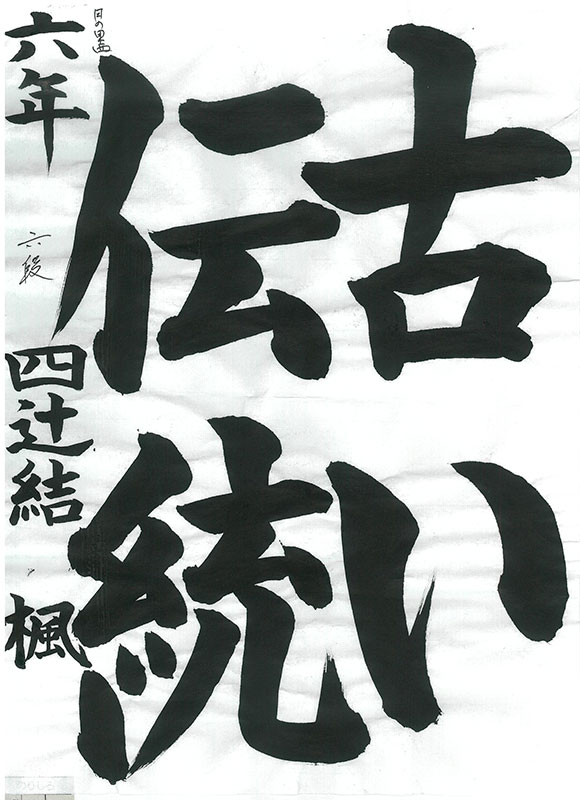 古い
伝統
六年 六段 四辻結楓